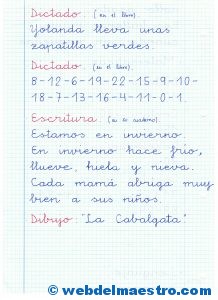 Dictado. (en el libro).
Yolanda lleva unas
zapatillas verdes.
Dictado. (en el libro).
8-12-6-19-22-15-9-10-
18-7-13-16-4-11-0-1.
Escritura. (en su cuaderno).
Estamos en invierno.
En invierno hace frío,
llueve, hiela y nieva.
Cada mamá abriga muy
bien a sus niños.
Dibujo: "La Cabalgata"
© webdelmaestro.com